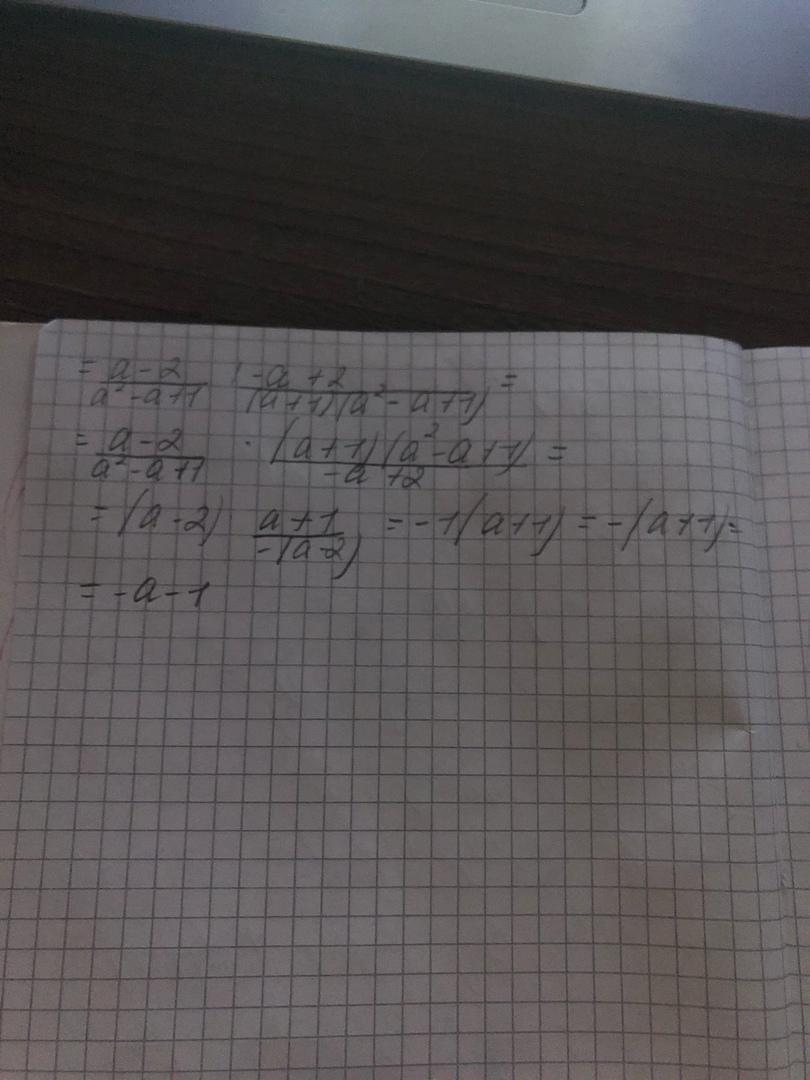 = (a-2)/(a²-a+1) : (-a+2)/((a+1)(a²-a+1)) =
= (a-2)/(a²-a+1) · ((a+1)(a²-a+1))/(-a+2) =
= (a-2) (a+1)/(-(a-2)) = -1(a+1) = -(a+1) =
= -a-1